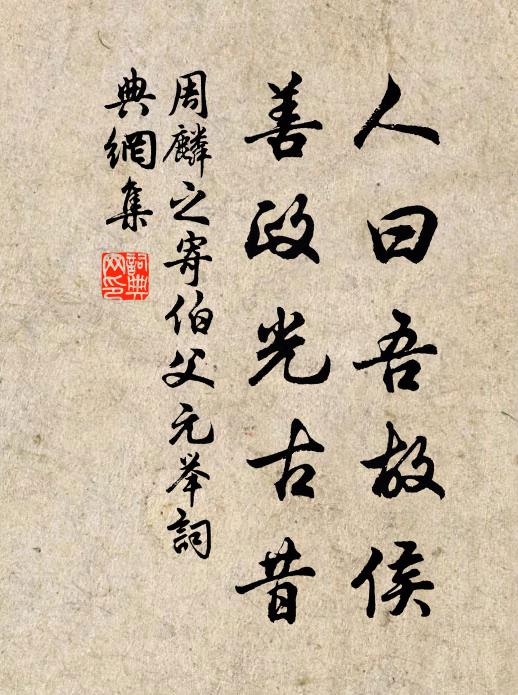 人曰吾故侯
善政光古昔
周麟之寄伯父元举詞
典網集
詞典
网印